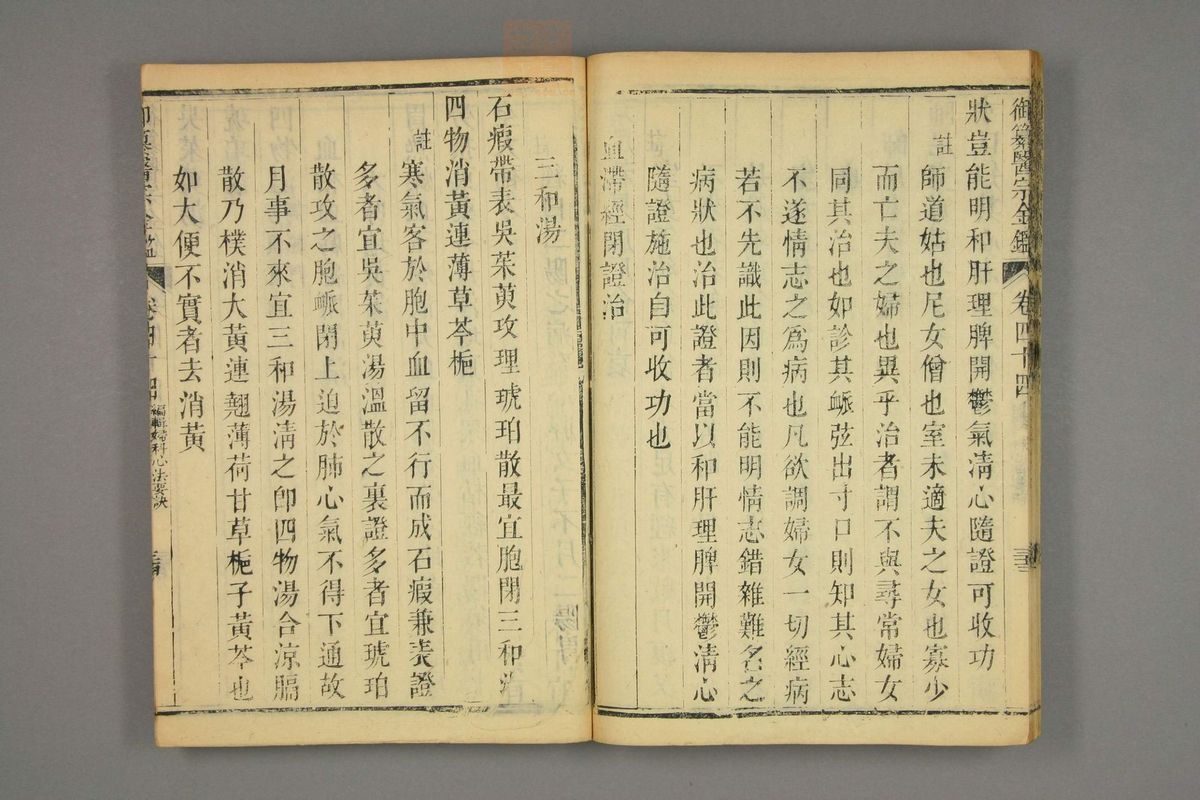 御纂醫宗金鑑 卷四十四
狀豈能明和肝理脾開鬱氣清心隨證可收功
註師道姑也尼女僧也室未適夫之女也寡少
而亡夫之婦也異乎治者謂不與尋常婦女
同其治也如診其脈弦出寸口則知其心志
不遂情志之為病也凡欲調婦女一切經病
若不先識此因則不能明情志錯雜難名之
病狀也治此證者當以和肝理脾開鬱清心
隨證施治自可收功也
血滯經閉證治
三和湯
石瘕帶表吳茱萸攻理琥珀散最宜胞閉三和湯
四物消黃連薄草芩梔
註寒氣客於胞中血留不行而成石瘕兼表證
多者宜吳茱萸湯溫散之裏證多者宜琥珀
散攻之胞脈閉上迫於肺心氣不得下通故
月事不來宜三和湯清之卽四物湯合涼膈
散乃樸消大黃連翹薄荷甘草梔子黃芩也
如大便不實者去消黃
御纂醫宗金鑑 卷四十四 編輯婦科心法要訣